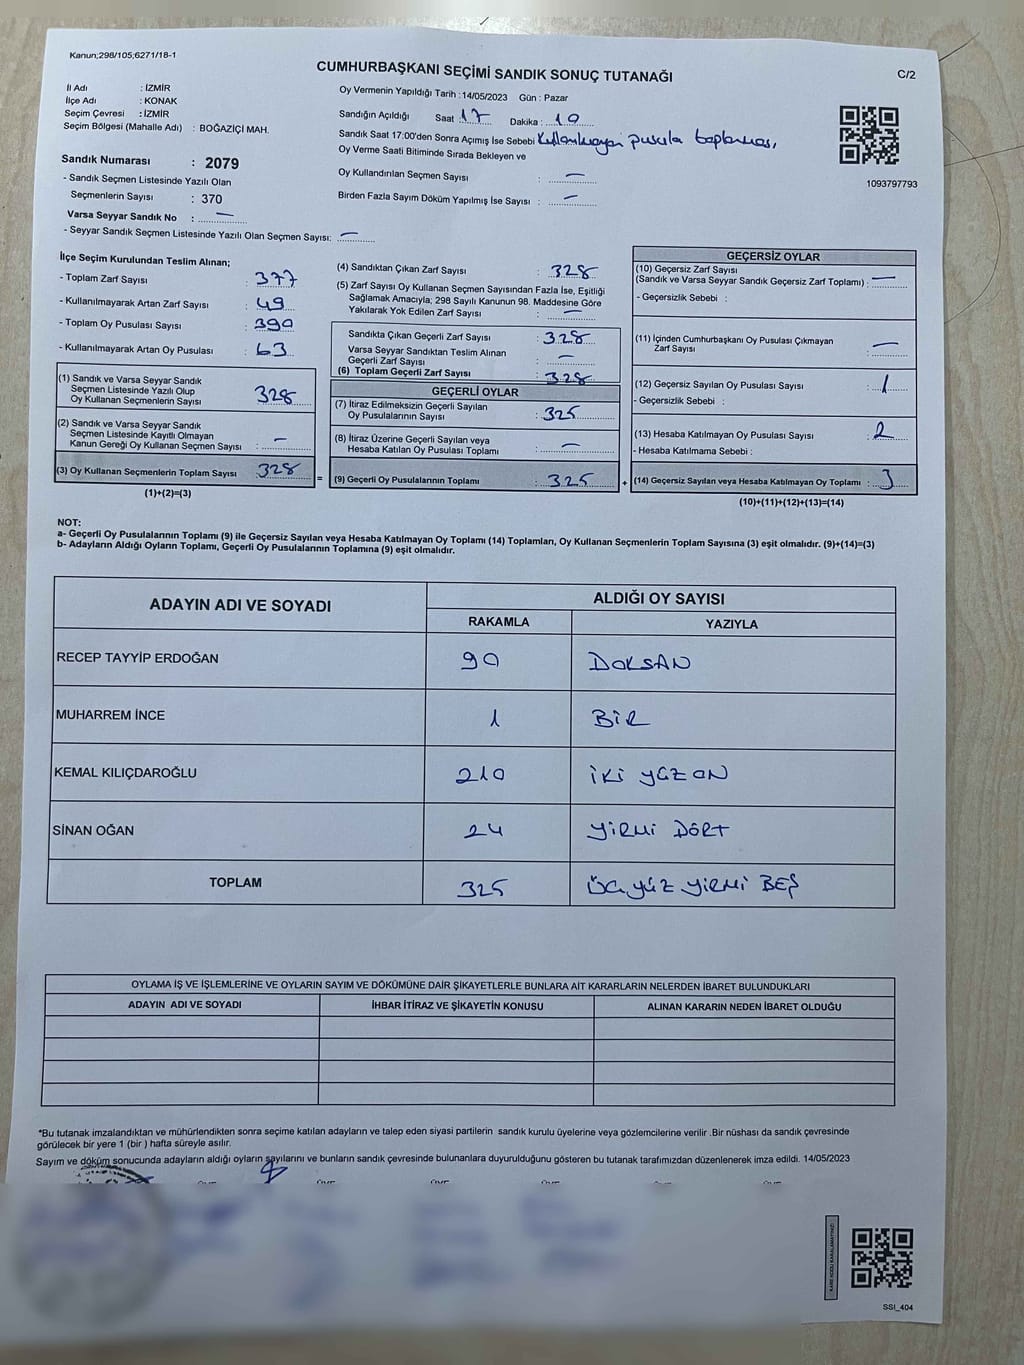 Kanun;298/105;6271/18-1
C/2
CUMHURBAŞKANI SEÇİMİ SANDIK SONUÇ TUTANAĞI
İl Adı : İZMİR
İlçe Adı : KONAK
Seçim Çevresi : İZMİR
Seçim Bölgesi (Mahalle Adı) : BOĞAZİÇİ MAH.
Sandık Numarası : 2079
- Sandık Seçmen Listesinde Yazılı Olan
Seçmenlerin Sayısı : 370
Varsa Seyyar Sandık No : —
- Seyyar Sandık Seçmen Listesinde Yazılı Olan Seçmen Sayısı: —
Oy Vermenin Yapıldığı Tarih : 14/05/2023 Gün : Pazar
Sandığın Açıldığı Saat : 17 Dakika : 10
Sandık Saat 17:00'den Sonra Açımış İse Sebebi Kullanılmayan pusula toplanması,
Oy Verme Saati Bitiminde Sırada Bekleyen ve
Oy Kullandırılan Seçmen Sayısı : —
Birden Fazla Sayım Döküm Yapılmış İse Sayısı : —
1093797793
İlçe Seçim Kurulundan Teslim Alınan;
- Toplam Zarf Sayısı : 377
- Kullanılmayarak Artan Zarf Sayısı : 49
- Toplam Oy Pusulası Sayısı : 390
- Kullanılmayarak Artan Oy Pusulası : 63
(1) Sandık ve Varsa Seyyar Sandık
Seçmen Listesinde Yazılı Olup
Oy Kullanan Seçmenlerin Sayısı : 328
(2) Sandık ve Varsa Seyyar Sandık
Seçmen Listesinde Kayıtlı Olmayan
Kanun Gereği Oy Kullanan Seçmen Sayısı : —
(3) Oy Kullanan Seçmenlerin Toplam Sayısı : 328
(1)+(2)=(3)
=
(4) Sandıktan Çıkan Zarf Sayısı : 328
(5) Zarf Sayısı Oy Kullanan Seçmen Sayısından Fazla İse, Eşitliği
Sağlamak Amacıyla; 298 Sayılı Kanunun 98. Maddesine Göre
Yakılarak Yok Edilen Zarf Sayısı : —
Sandıkta Çıkan Geçerli Zarf Sayısı : 328
Varsa Seyyar Sandıktan Teslim Alınan
Geçerli Zarf Sayısı : —
(6) Toplam Geçerli Zarf Sayısı : 328
GEÇERLİ OYLAR
(7) İtiraz Edilmeksizin Geçerli Sayılan
Oy Pusulalarının Sayısı : 325
(8) İtiraz Üzerine Geçerli Sayılan veya
Hesaba Katılan Oy Pusulası Toplamı : —
(9) Geçerli Oy Pusulalarının Toplamı : 325
+
GEÇERSİZ OYLAR
(10) Geçersiz Zarf Sayısı
(Sandık ve Varsa Seyyar Sandık Geçersiz Zarf Toplamı) : —
- Geçersizlik Sebebi :
(11) İçinden Cumhurbaşkanı Oy Pusulası Çıkmayan
Zarf Sayısı : —
(12) Geçersiz Sayılan Oy Pusulası Sayısı : 1
- Geçersizlik Sebebi :
(13) Hesaba Katılmayan Oy Pusulası Sayısı : 2
- Hesaba Katılmama Sebebi :
(14) Geçersiz Sayılan veya Hesaba Katılmayan Oy Toplamı : 3
(10)+(11)+(12)+(13)=(14)
NOT:
a- Geçerli Oy Pusulalarının Toplamı (9) ile Geçersiz Sayılan veya Hesaba Katılmayan Oy Toplamı (14) Toplamları, Oy Kullanan Seçmenlerin Toplam Sayısına (3) eşit olmalıdır. (9)+(14)=(3)
b- Adayların Aldığı Oyların Toplamı, Geçerli Oy Pusulalarının Toplamına (9) eşit olmalıdır.
ADAYIN ADI VE SOYADI
ALDIĞI OY SAYISI
RAKAMLA YAZIYLA
RECEP TAYYİP ERDOĞAN 90 DOKSAN
MUHARREM İNCE 1 BİR
KEMAL KILIÇDAROĞLU 210 İKİ YÜZ ON
SİNAN OĞAN 24 YİRMİ DÖRT
TOPLAM 325 ÜÇ YÜZ YİRMİ BEŞ
OYLAMA İŞ VE İŞLEMLERİNE VE OYLARIN SAYIM VE DÖKÜMÜNE DAİR ŞİKAYETLERLE BUNLARA AİT KARARLARIN NELERDEN İBARET BULUNDUKLARI
ADAYIN ADI VE SOYADI İHBAR İTİRAZ VE ŞİKAYETİN KONUSU ALINAN KARARIN NEDEN İBARET OLDUĞU
*Bu tutanak imzalandıktan ve mühürlendikten sonra seçime katılan adayların ve talep eden siyasi partilerin sandık kurulu üyelerine veya gözlemcilerine verilir .Bir nüshası da sandık çevresinde
görülecek bir yere 1 (bir ) hafta süreyle asılır.
Sayım ve döküm sonucunda adayların aldığı oyların sayılarını ve bunların sandık çevresinde bulunanlara duyurulduğunu gösteren bu tutanak tarafımızdan düzenlenerek imza edildi. 14/05/2023
KARE KODU KARALAMAYINIZ!
SSI_404